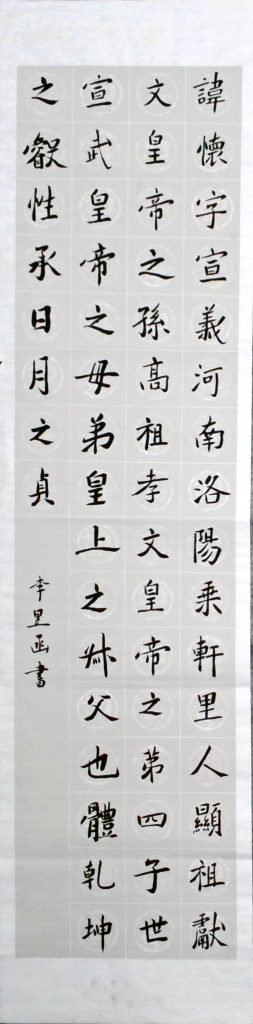 諱懷字宣義河南洛陽乘軒里人顯祖獻
文皇帝之孫高祖孝文皇帝之第四子世
宣武皇帝之母弟皇上之叔父也體乾坤
之叡性承日月之貞
李昱函書